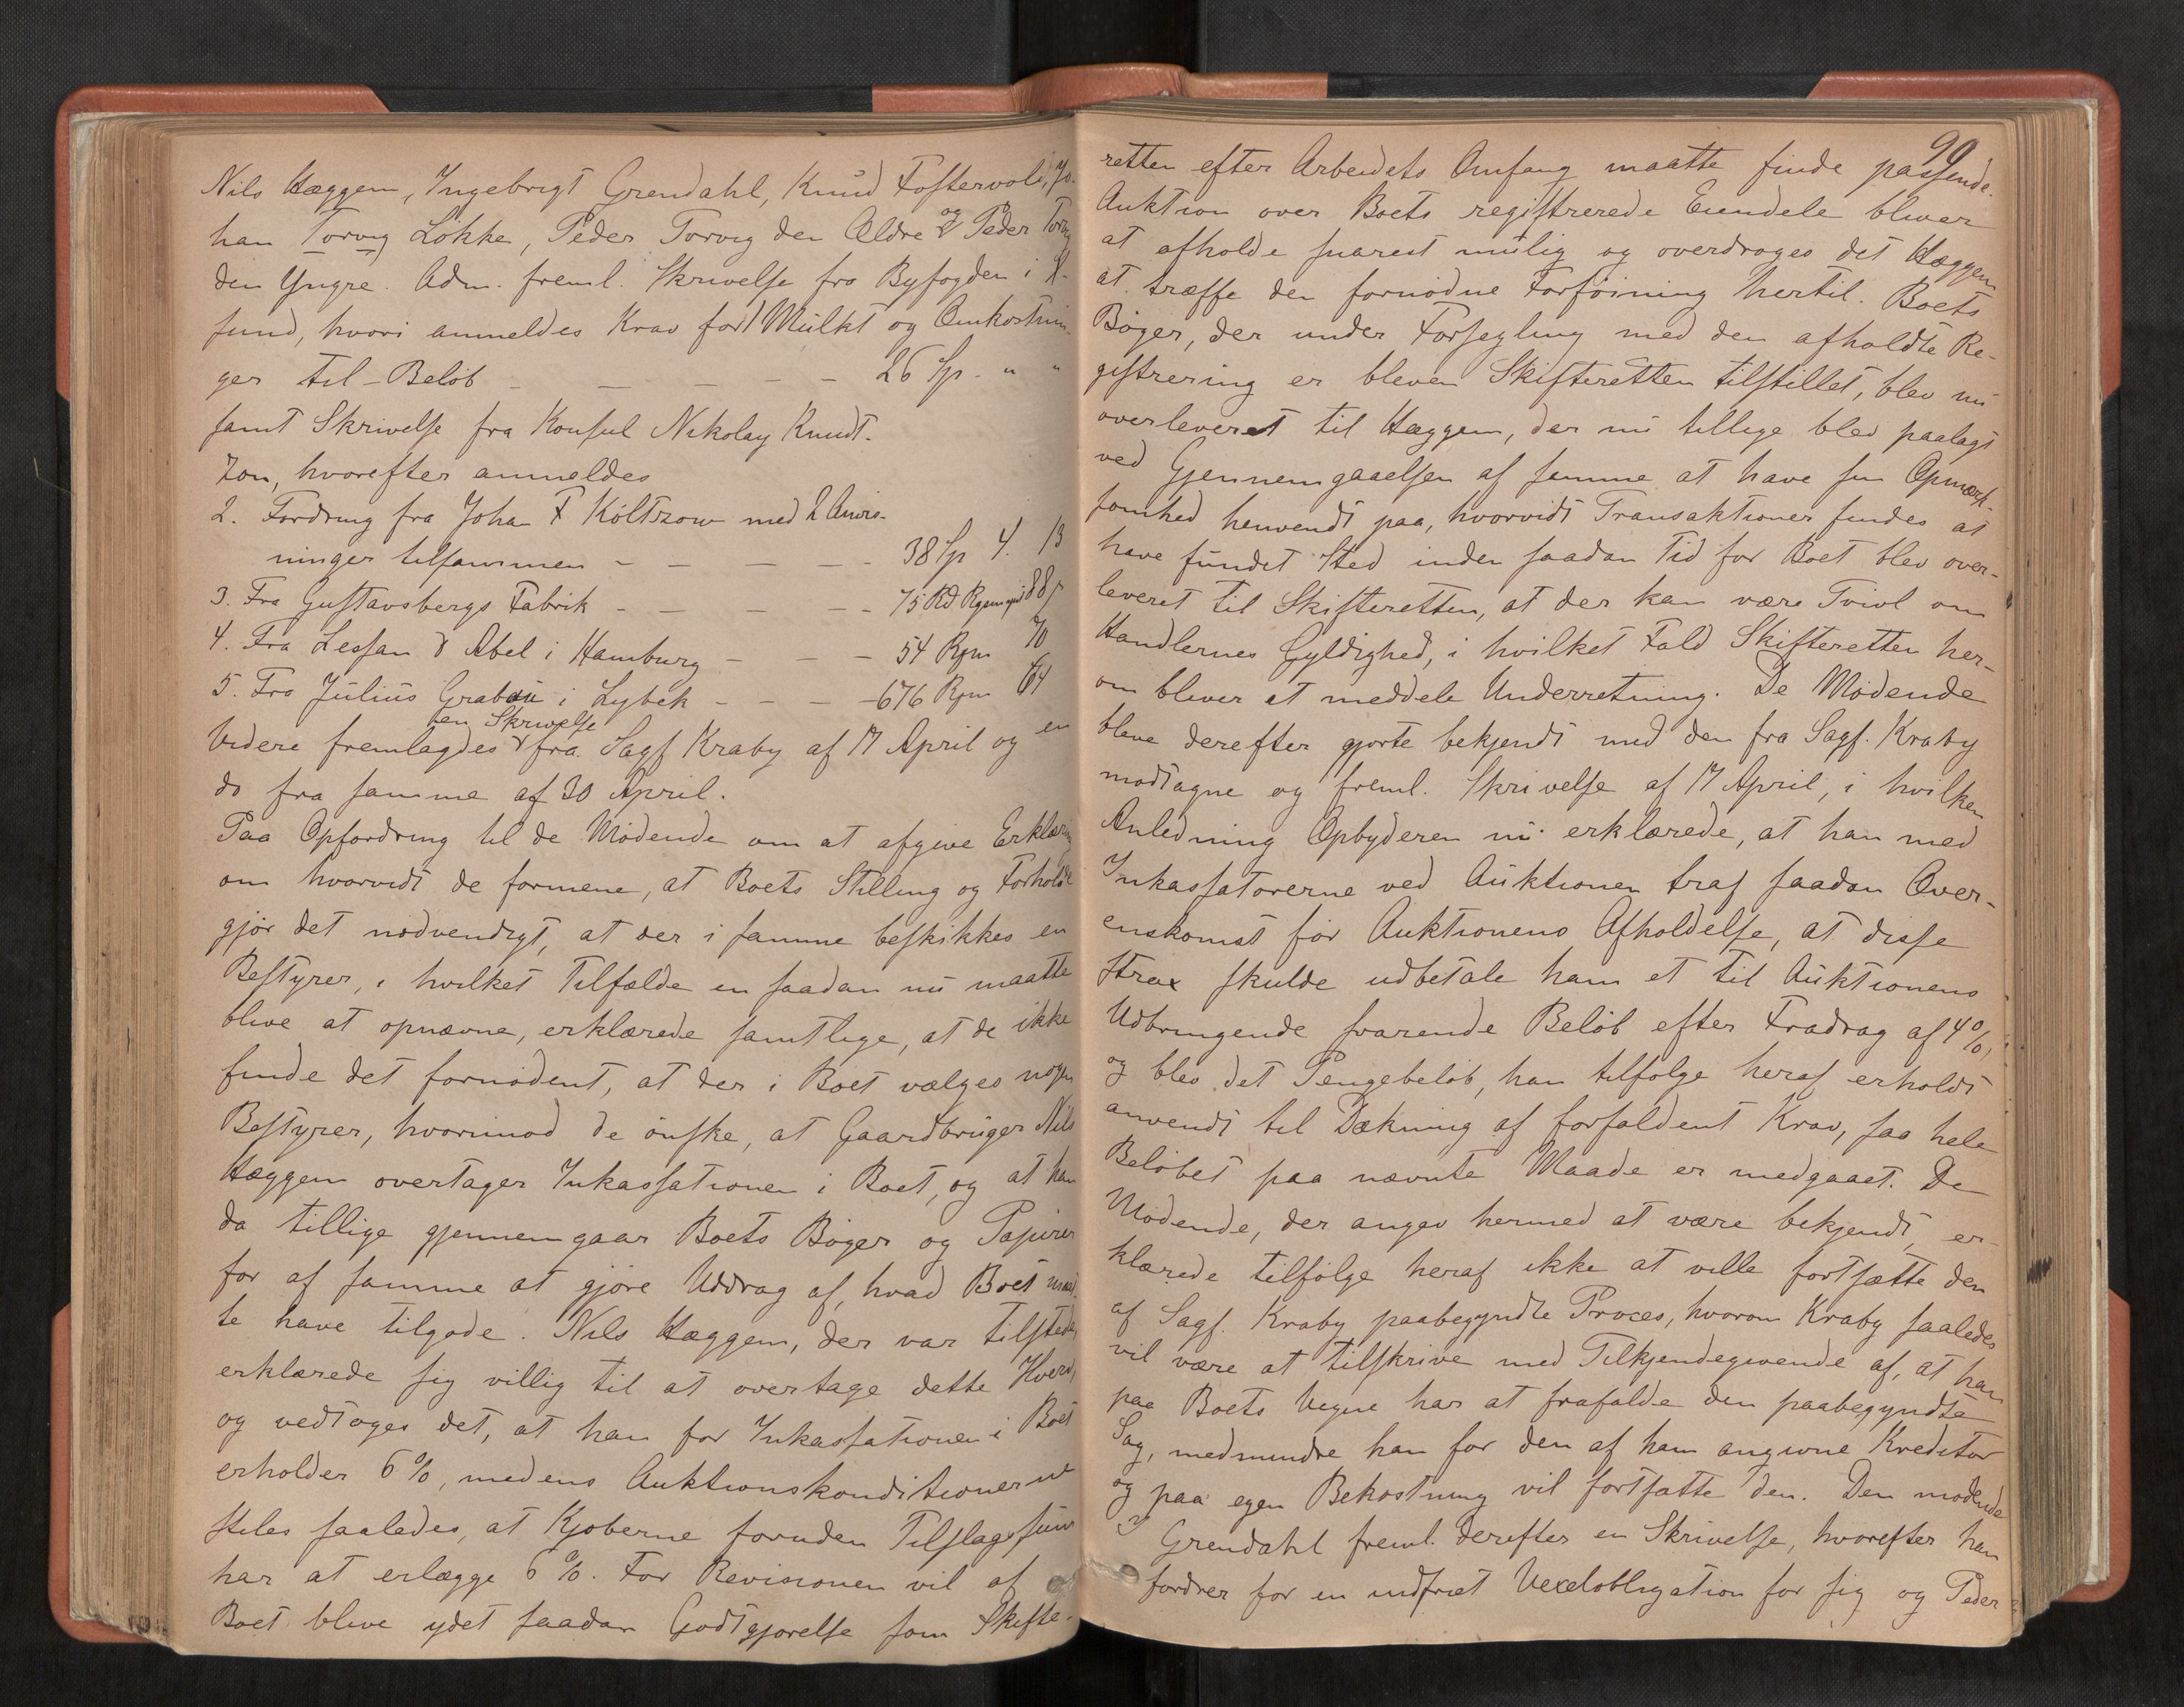 Nils Hæggem, Ingebrigt Grendahl, Knud Fostervold, Jo-
han Torvig Løkke, Peder Torvig den Ældre og Peder Torvig
den Yngre. Adm. freml. Skrivelse fra Byfogden i K.
sund, hvori anmeldes Krav for 1 Mulkt og Omkostnin-
ger til Beløb - - - - - 26 Sp. " "
samt Skrivelse fra Konsul Nikolay Knudt-
zon, hvorefter anmeldes
2. Fordring fra Joha F Költzow med 2 Anvis-
ninger tilsammen - - - - - 38 Sp 4. 13
3. Fra Gustavsbergs Fabrik - - - - 75 Rd 88
4. Fra Lessan & Abel i Hamburg - - - 54 Rpm 70
5. Fra Julius Grabau i Lybek - - - 676 Rpm 64
Videre fremlagdes en Skrivelse fra Sagf Kraby af 17 April og en
do fra samme af 30 April.
Paa Opfordring til de Mødende om at afgive Erklæring
om hvorvidt de formene, at Boets Stilling og Forholde
gjør det nødvendigt, at der i samme beskikkes en
Bestyrer, i hvilket Tilfælde en saadan nu maatte
blive at opnævne, erklærede samtlige, at de ikke
finde det fornødent, at der i Boet vælges nogen
Bestyrer, hvorimod de ønske, at Gaardbruger Nils
Hæggem overtager Inkassationen i Boet, og at han
da tillige gjennemgaar Boets Bøger og Papirer
for af samme at gjøre Uddrag af, hvad Boet maat-
te have tilgode. Nils Hæggem, der var tilstede,
erklærede sig villig til at overtage dette Hverv,
og vedtoges det, at han for Inkassationen i Boet
erholder 6 %, medens Auktionskonditionerne
stiles saaledes, at Kjøberne foruden Tilslagssum
har at erlægge 6 %. For Revisionen vil af
Boet blive ydet saadan Godtgjørelse som Skifte-
99
retten efter Arbeidets Omfang maatte finde passende.
Auktion over Boets registrerede Eiendele bliver
at afholde snarest mulig og overdrages det Hæggem
at træffe den fornødne Forføining hertil. Boets
Bøger, der under Forsegling med den afholdte Re-
gistrering er bleven Skifteretten tilstillet, blev nu
overleveret til Hæggem, der nu tillige blev paalagt
ved Gjennemgaaelsen af samme at have sin Opmærk-
somhed henvendt paa, hvorvidt Transaktioner findes at
have fundet Sted inden saadan Tid før Boet blev over-
leveret til Skifteretten, at der kan være Tvivl om
Handlernes Gyldighed, i hvilket Fald Skifteretten her-
om bliver at meddele Underretning. De Mødende
bleve derefter gjorte bekjendt med den fra Sagf. Kraby
modtagne og freml. Skrivelse af 17 April, i hvilken
Anledning Opbyderen nu erklærede, at han med
Inkassatorerne ved Auktionen traf saadan Over-
enskomst før Auktionens Afholdelse, at disse
strax skulde udbetale ham et til Auktionens
Udbringende svarende Beløb efter Fradrag af 4 %,
og blev det Pengebeløb, han tilfølge heraf erholdt
anvendt til Dækning af forfaldent Krav, saa hele
Beløbet paa nævnte Maade er medgaaet. De
Mødende, der angav hermed at være bekjendt, er-
klærede tilfølge heraf ikke at ville fortsætte den
af Sagf. Kraby paabegyndte Proces, hvorom Kraby saaledes
vil være at tilskrive med Tilkjendegivende af, at han
paa Boets Vegne har at frafalde den paabegyndte
Sag, medmindre han for den af ham angivne Kreditor
og paa egen Bekostning vil fortsætte den. Den mødende
Grendahl freml. derefter en Skrivelse, hvorefter han
fordrer for en indfriet Vexelobligation for sig og Peder